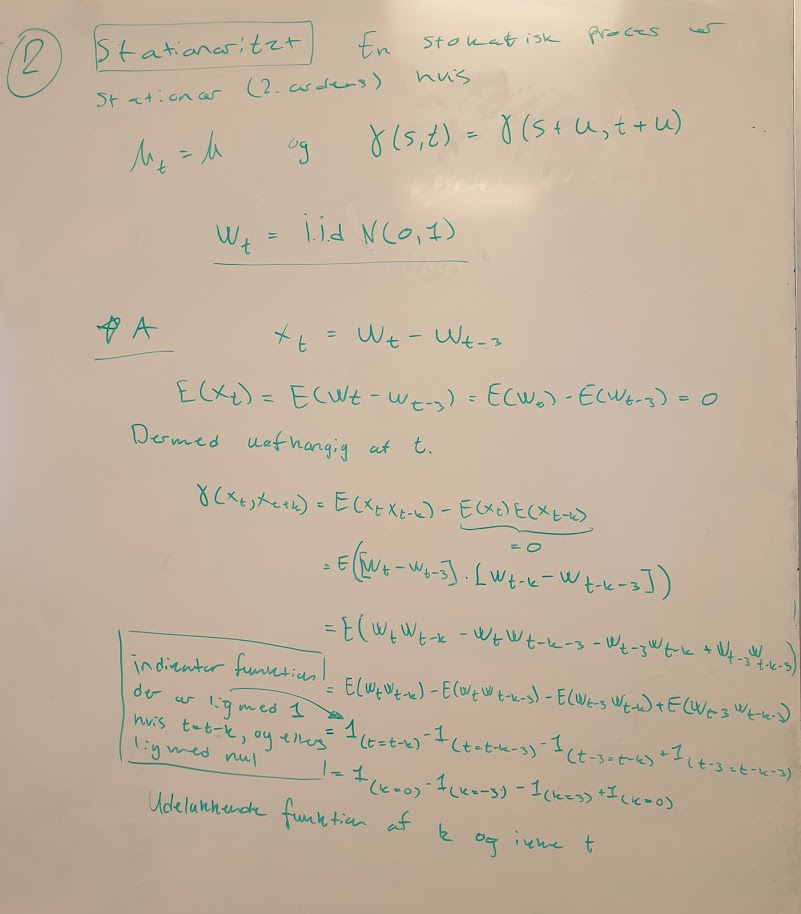 2
Stationaritet En stokastisk proces er
stationær (2. ordens) hvis
μ_t = μ og γ(s,t) = γ(s+u, t+u)
W_t = i.i.d N(0,1)
A X_t = W_t - W_{t-3}
E(X_t) = E(W_t - W_{t-3}) = E(W_t) - E(W_{t-3}) = 0
Dermed uafhængig af t.
γ(X_t, X_{t+k}) = E(X_t X_{t-k}) - E(X_t)E(X_{t-k})
= 0
= E([W_t - W_{t-3}] · [W_{t-k} - W_{t-k-3}])
= E(W_t W_{t-k} - W_t W_{t-k-3} - W_{t-3} W_{t-k} + W_{t-3} W_{t-k-3})
= E(W_t W_{t-k}) - E(W_t W_{t-k-3}) - E(W_{t-3} W_{t-k}) + E(W_{t-3} W_{t-k-3})
indikator funktion
der er lig med 1
hvis t=t-k, og ellers
lig med nul
= 1_(t=t-k) - 1_(t=t-k-3) - 1_(t-3=t-k) + 1_(t-3=t-k-3)
= 1_(k=0) - 1_(k=-3) - 1_(k=3) + 1_(k=0)
Udelukkende funktion af k og ikke t